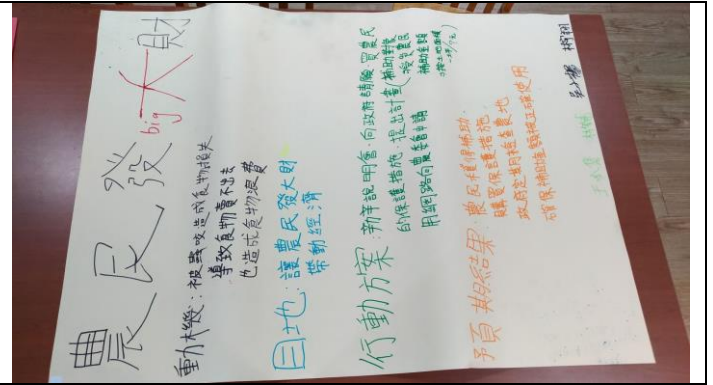 農民發big大財
動機：被蟲咬造成食物損失
導致食物賣不出去
也造成食物浪費
目地：讓農民發大財
帶動經濟
行動方案：辦說明會，向政府請願，買農民
的保護措施，提出計畫(補助對象
投資農民
用網路向農委會申請
補助金額
預期結果：農民獲得補助，
購買保護措施，
政府定期檢查農地
確保補助金額被正確使用